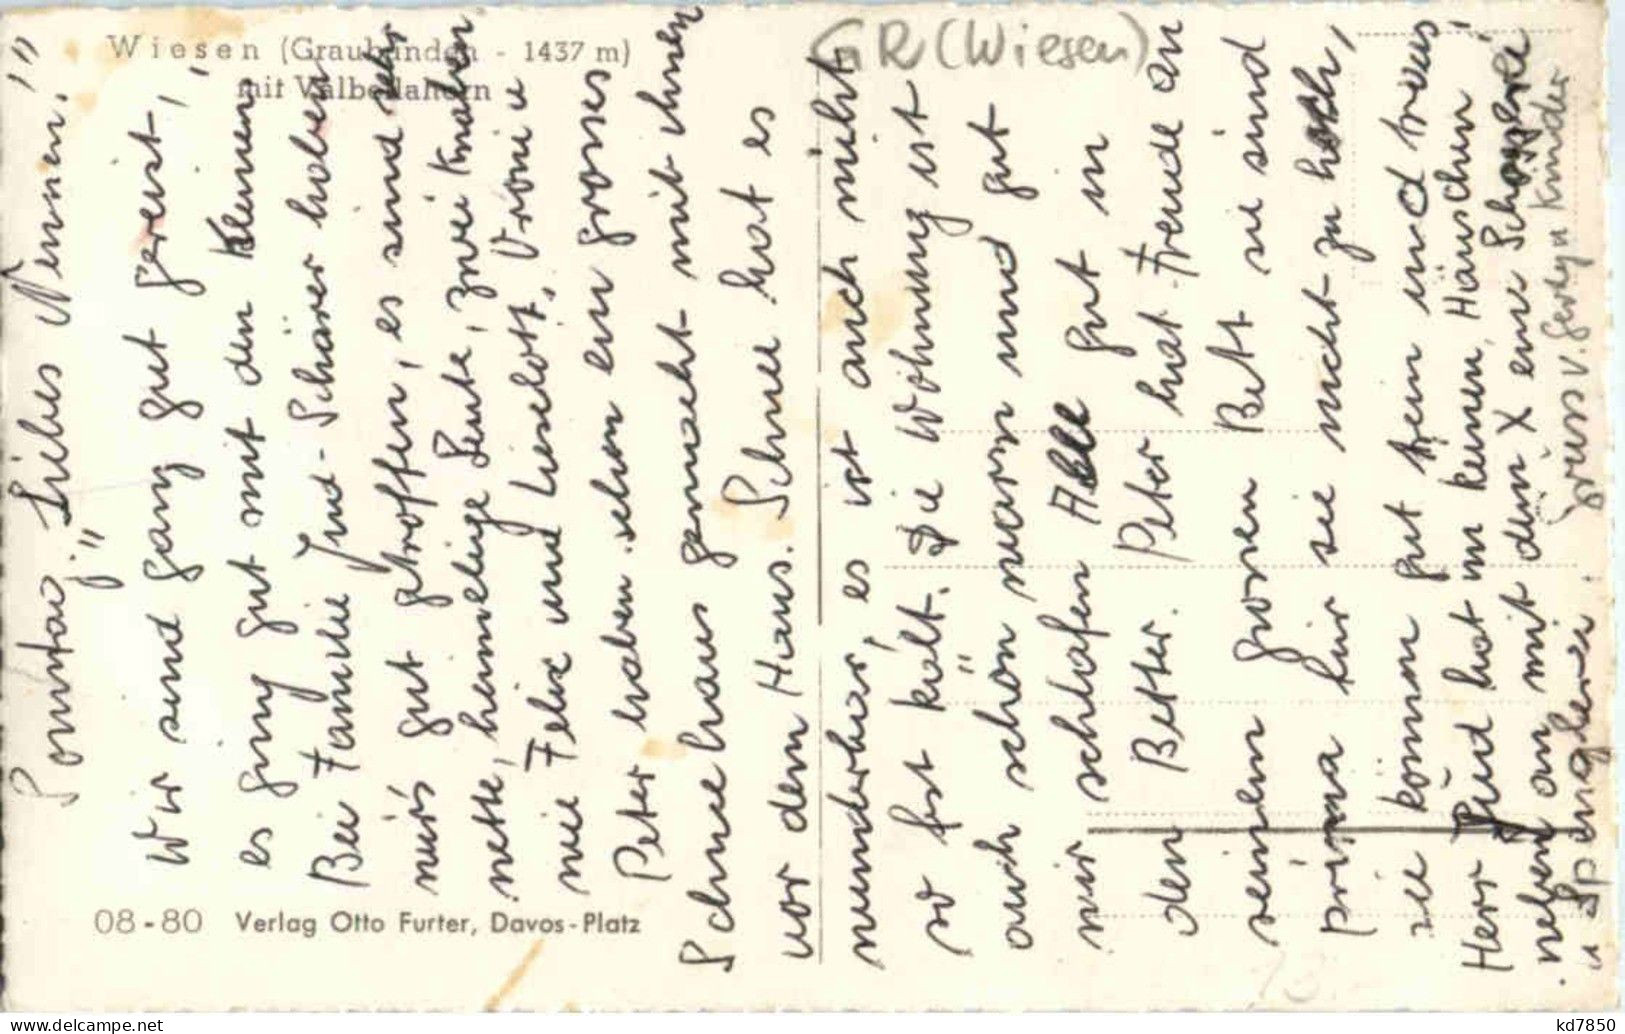 Wiesen (Graubünden - 1437 m)
mit Valbellahorn
GR (Wiesen)
Sonntag. "Liebes Nennen!"
Wir sind ganz gut gereist,
es ging gut mit den kleinen
Bei Familie Jud-Schärer haben
wirs gut getroffen, es sind sehr
nette, heimelige Leute, zwei Knaben
wie Felix und Lieselott, Vroni u
Peter haben schon ein grosses
Schneehaus gemacht mit ihnen
vor dem Haus. Schnee hat es
wunderbar, es ist auch nicht
so fest kalt. Die Wohnung ist
auch schön warm und gut
wir schlafen Alle gut in
den Better. Peter hat Freude an
seinem grosen Bett sie sind
prima hir sie nicht zu hoch,
sie können gut hein und rous
Herr Jud hat im keinen Häuschen
neben an mit dem X eine
u Spenglerei. Gruss v. Gerly u Kinder
08-80 Verlag Otto Furter, Davos-Platz
kd7850